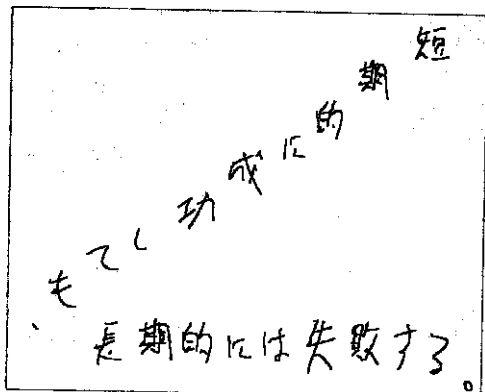 短期的に成功しても、
長期的には失敗する。